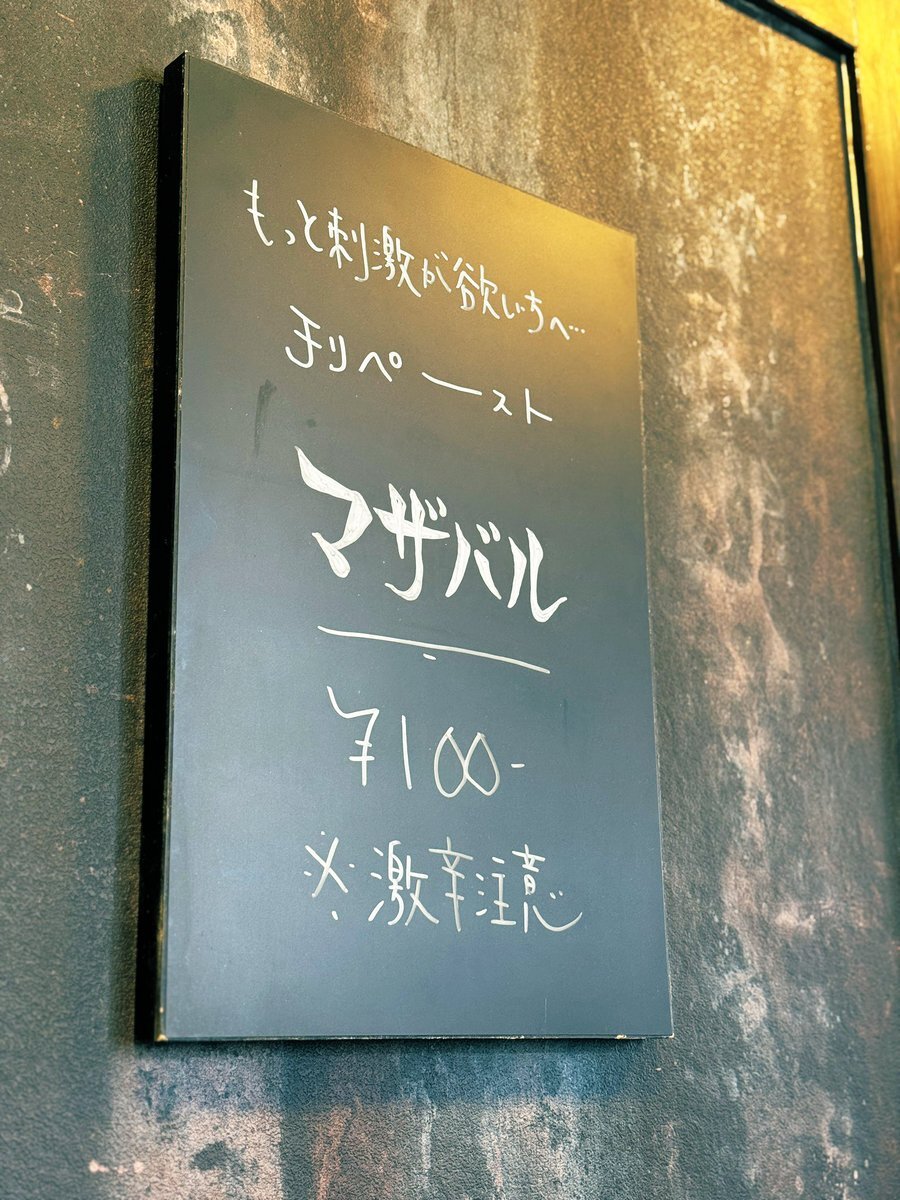 もっと刺激が欲しい方へ…
チリペースト
マザバル
¥100-
※激辛注意